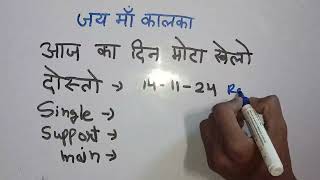 जय माँ कालका
आज का दिन मोटा खेलो
दोस्तो → 14-11-24 Re
Single →
Support →
main →